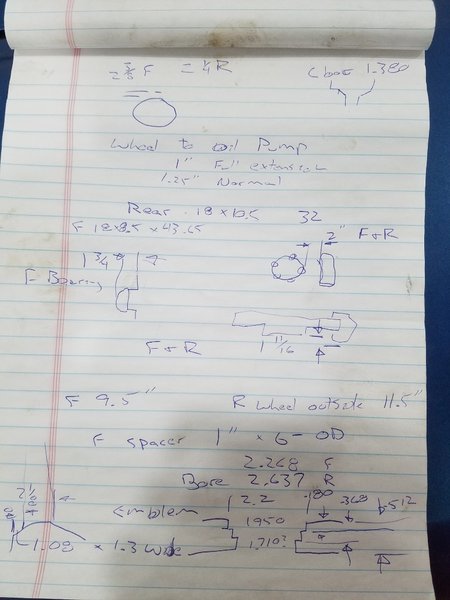 2 3/8 F = 1/4 R
C bore 1.380
Wheel to oil Pump
1" Full extension
1.25" Normal
Rear 18 x 10.5 32
F 18 x 8.5 x 43.65
2" F+R
1 3/4
F Bearing
1 11/16
F+R
F 9.5" R wheel outside 11.5"
F spacer 1" x 6- OD
2.268 F
Bore 2.637 R
Emblem 2.2 .180 .368 .512
1.950
1.08 x 1.3 wide 1.710?